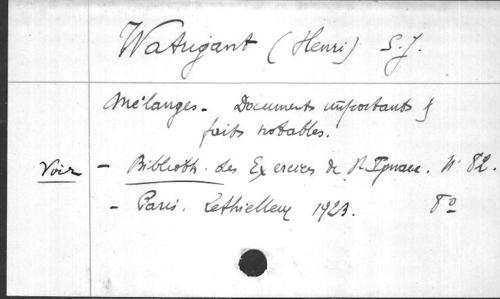 Watrigant (Henri) S.J.
Mélanges. Documents importants &
faits notables.
Voir - Biblioth. des Exercices de S Ignace. N° 82.
- Paris. Lethielleux 1923. 8°